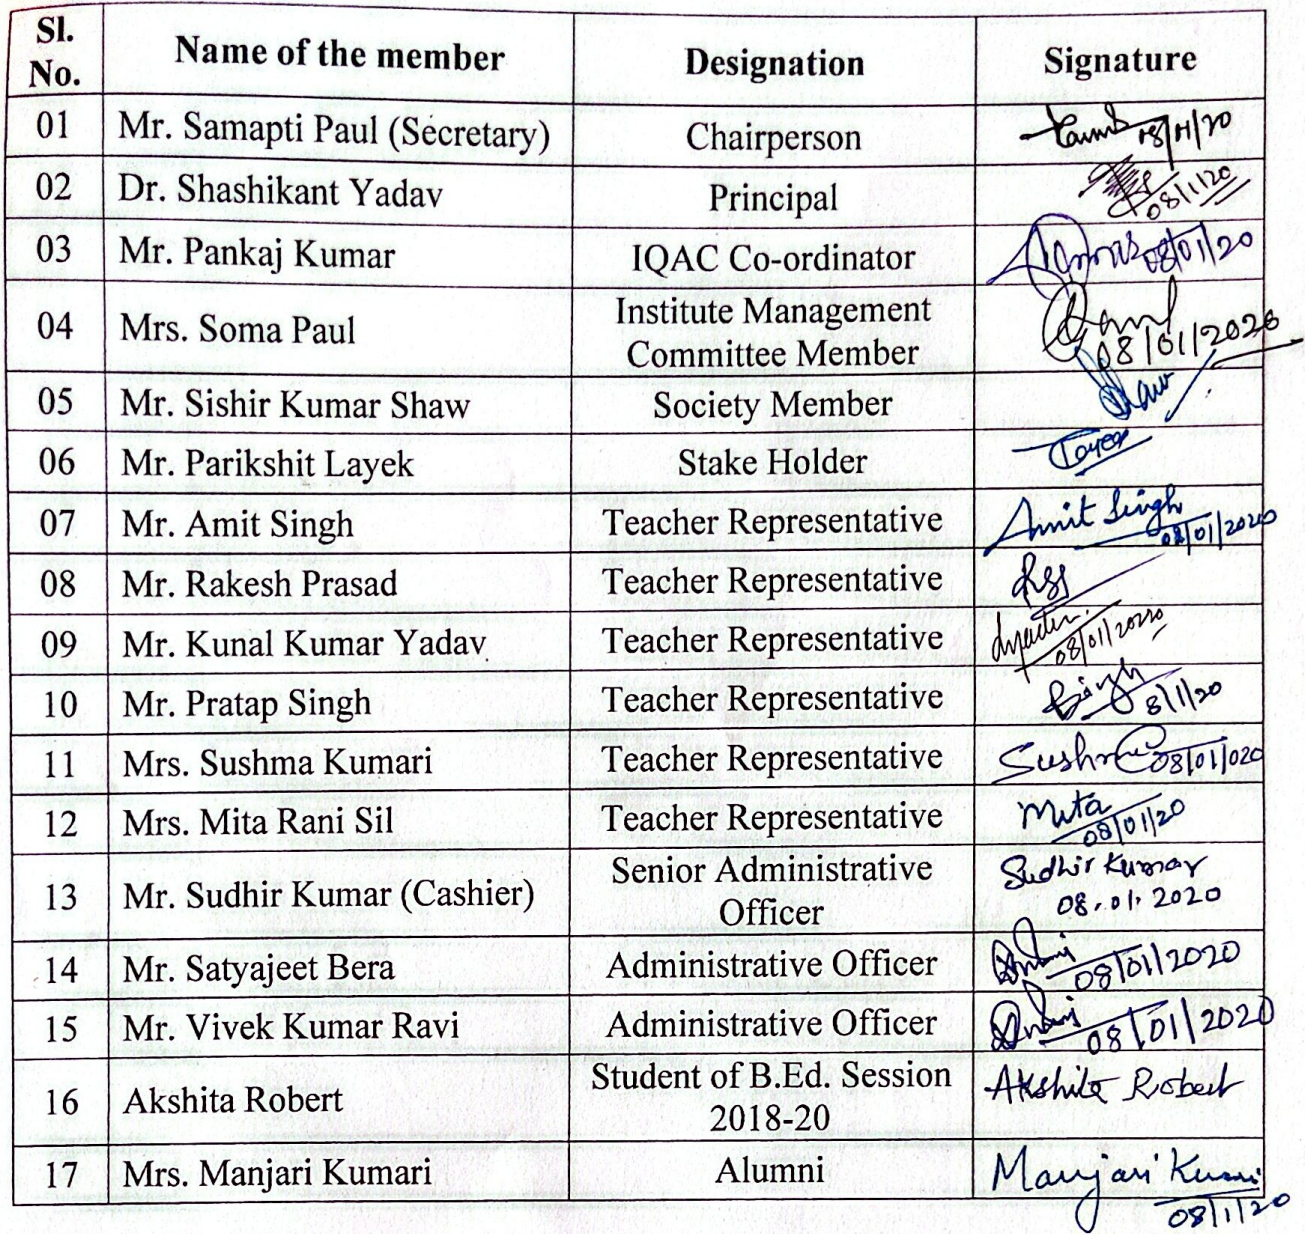 Sl. No. Name of the member Designation Signature
01 Mr. Samapti Paul (Secretary) Chairperson 08/01/20
02 Dr. Shashikant Yadav Principal 08/1/20
03 Mr. Pankaj Kumar IQAC Co-ordinator 08/01/20
04 Mrs. Soma Paul Institute Management Committee Member 08/01/2020
05 Mr. Sishir Kumar Shaw Society Member Shaw
06 Mr. Parikshit Layek Stake Holder
07 Mr. Amit Singh Teacher Representative Amit Singh 08/01/2020
08 Mr. Rakesh Prasad Teacher Representative
09 Mr. Kunal Kumar Yadav Teacher Representative 08/01/2020
10 Mr. Pratap Singh Teacher Representative Singh 8/1/20
11 Mrs. Sushma Kumari Teacher Representative Sushma 08/01/020
12 Mrs. Mita Rani Sil Teacher Representative Mita 08/01/20
13 Mr. Sudhir Kumar (Cashier) Senior Administrative Officer Sudhir Kumar 08.01.2020
14 Mr. Satyajeet Bera Administrative Officer 08/01/2020
15 Mr. Vivek Kumar Ravi Administrative Officer 08/01/2020
16 Akshita Robert Student of B.Ed. Session 2018-20 Akshita Robert
17 Mrs. Manjari Kumari Alumni Manjari Kumari 08/1/20